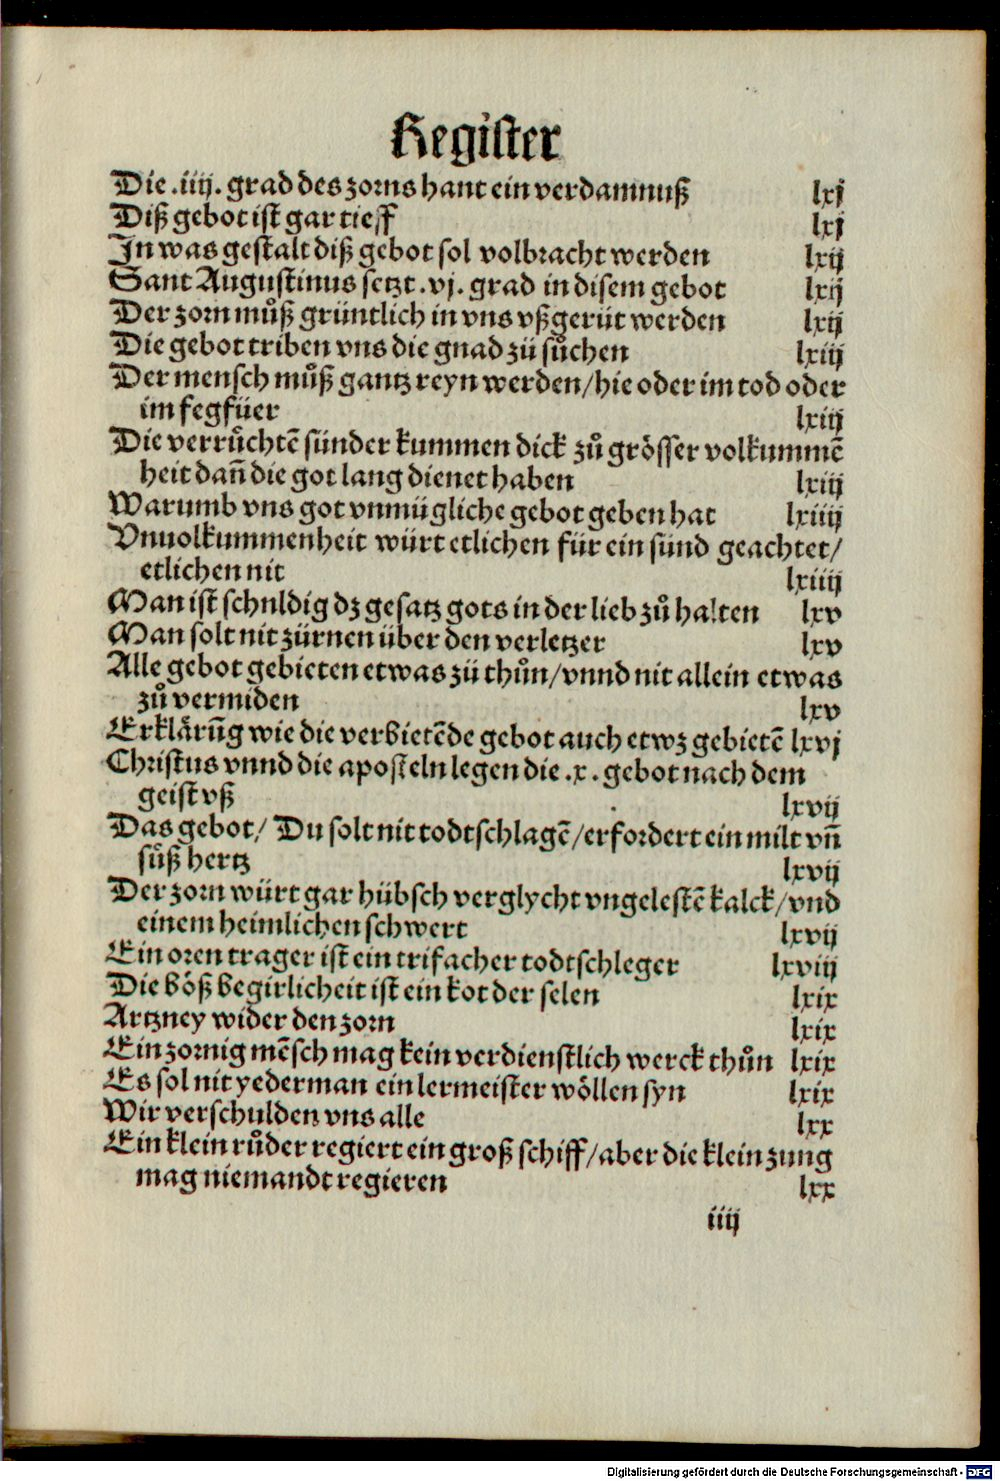 Register
Die .iiij. grad des zorns hant ein verdamnuß lxj
Diß gebot ist gar tieff lxj
In was gestalt diß gebot sol volbracht werden lxij
Sant Augustinus setzt .vj. grad in disem gebot lxij
Der zorn můß grüntlich in vns vßgerüt werden lxij
Die gebot triben vns die gnad zü sůchen lxiij
Der mensch můß gantz reyn werden/hie oder im tod oder
im fegfüer lxiij
Die verrůchtē sünder kummen dick zů grösser volkummē
heit dañ die got lang dienet haben lxiij
Warumb vns got vnmügliche gebot geben hat lxiiij
Vnuolkummenheit würt etlichen für ein sünd geachtet/
etlichen nit lxiiij
Man ist schuldig dz gesatz gots in der lieb zů halten lxv
Man solt nit zürnen über den verletzer lxv
Alle gebot gebieten etwas zü thůn/vnnd nit allein etwas
zů vermiden lxv
Erklärūg wie die verbietēde gebot auch etwz gebietē lxvj
Christus vnnd die aposteln legen die .x. gebot nach dem
geist vß lxvij
Das gebot/ Du solt nit todtschlagē/erfordert ein milt vñ
süß hertz lxvij
Der zorn würt gar hübsch verglycht vngelestē kalck/vnd
einem heimlichen schwert lxvij
Ein oren trager ist ein trifacher todtschleger lxviij
Die böß begirlicheit ist ein kot der selen lxix
Artzney wider den zorn lxix
Ein zornig mēsch mag kein verdienstlich werck thůn lxix
Es sol nit yederman ein lermeister wöllen syn lxix
Wir verschulden vns alle lxx
Ein klein růder regiert ein groß schiff/aber die klein zung
mag niemandt regieren lxx
iiij
Digitalisierung gefördert durch die Deutsche Forschungsgemeinschaft - DFG